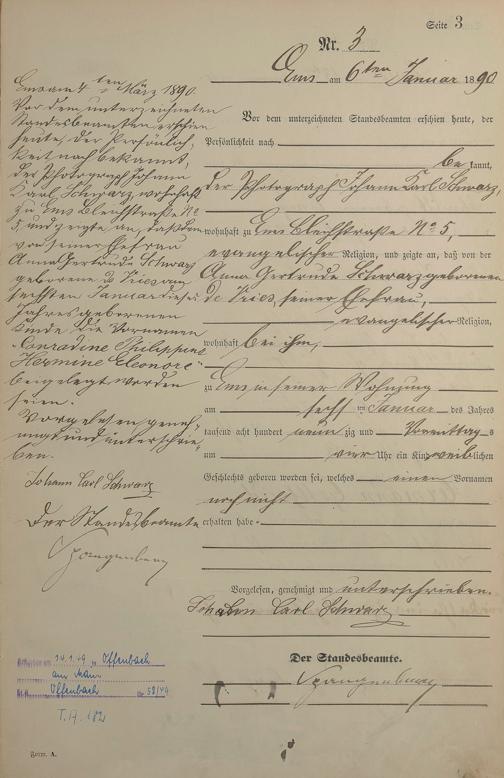 Seite 3
Nr. 3
Ems am 6ten Januar 1890
Vor dem unterzeichneten Standesbeamten erschien heute, der
Persönlichkeit nach
be kannt,
der Photograph Johann Karl Schwarz,
wohnhaft zu Ems Bleichstraße No 5,
evangelischer Religion, und zeigte an, daß von der
Anna Gertrude Schwarz geborenen
de Vries, seiner Ehefrau,
evangelischer Religion,
wohnhaft bei ihm,
zu Ems in seiner Wohnung
am sechsten Januar des Jahres
tausend acht hundert neunzig und Vormittags
um vier Uhr ein Kind weiblichen
Geschlechts geboren worden sei, welches einen Vornamen
noch nicht
erhalten habe
Vorgelesen, genehmigt und unterschrieben.
Johann Carl Schwarz
Der Standesbeamte.
Spangenberg
Ems am 4ten März 1890.
Vor dem unterzeichneten
Standesbeamten erschien
heute, der Persönlich
keit nach bekannt,
der Photograph Johann
Karl Schwarz, wohnhaft
zu Ems Bleichstraße No
5, und zeigte an, daß dem
von seiner Ehefrau
Anna Gertrude Schwarz
geborene de Vries am
sechsten Januar dieses
Jahres geborenen
Kinde die Vornamen
"Conradine Philippine
Hermine Eleonore"
beigelegt worden
seien.
Vorgelesen geneh
migt und unterschrie
ben.
Johann Carl Schwarz
Der Standesbeamte
Spangenberg
14.1.49 in Offenbach
am Main
Offenbach Nr. 58/49
T.A. 182
Form. A.